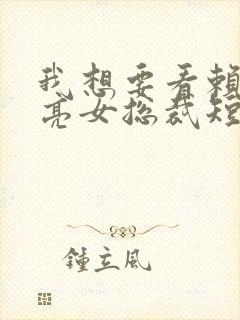 我想要看賴
亮女总裁短
鍾立风